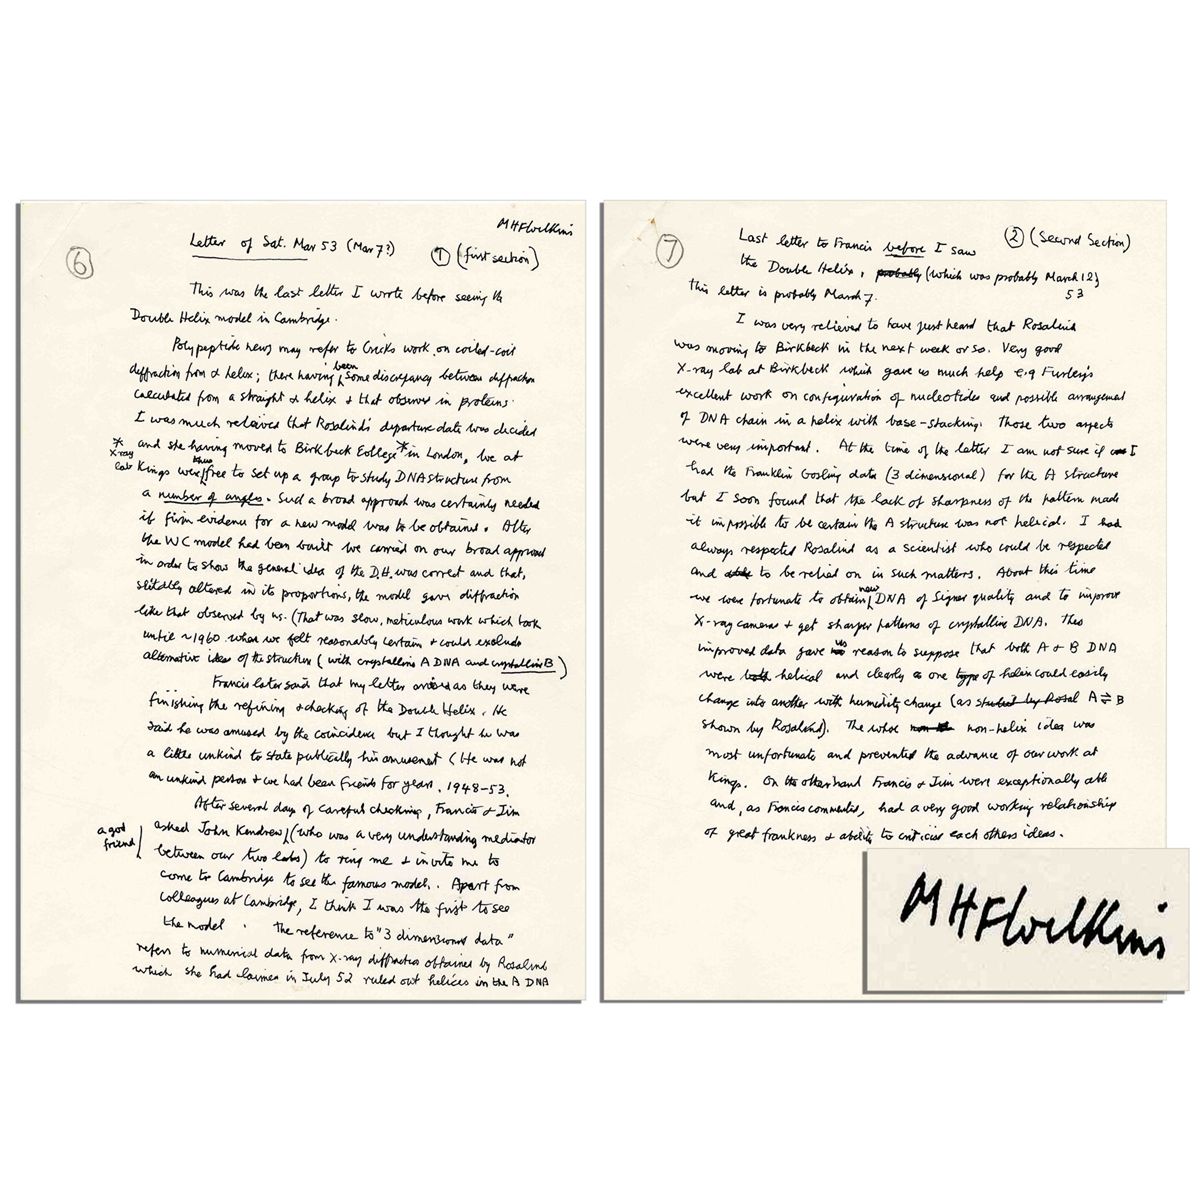 MHFWilkins
6
Letter of Sat. Mar 53 (Mar 7?) 1 (first section)
This was the last letter I wrote before seeing the
Double Helix model in Cambridge.
Polypeptide news may refer to Cricks work on coiled-coil
diffraction from α helix; there having been some discrepancy between diffraction
calculated from a straight α helix & that observed in proteins.
I was much relieved that Rosalind's departure date was decided
and she having moved to Birkbeck College * in London, we at
* X-ray lab
Kings were thus free to set up a group to study DNA structure from
a number of angles. Such a broad approach was certainly needed
if firm evidence for a new model was to be obtained. After
the WC model had been built we carried on our broad approach
in order to show the general idea of the D.H. was correct and that,
slitably altered in its proportions, the model gave diffraction
like that observed by us. (That was slow, meticulous work which took
until ~1960 when we felt reasonably certain & could exclude
alternative ideas of the structure (with crystalline A DNA and crystalline B)
Francis later said that my letter arrived as they were
finishing the refining & checking of the Double Helix. He
said he was amused by the coincidence but I thought he was
a little unkind to state publically his amusement (He was not
an unkind person & we had been friends for years. 1948-53.
After several day of careful checking, Francis & Jim
asked John Kendrew, (who was a very understanding mediator
a good friend
between our two labs) to ring me & invite me to
come to Cambridge to see the famous model. Apart from
colleagues at Cambridge, I think I was the first to see
the model. The reference to "3 dimensional data"
refers to numerical data from X-ray diffraction obtained by Rosalind
which she had claimed in July 52 ruled out helices in the A DNA
7
Last letter to Francis before I saw 2 (Second Section)
the Double Helix, probably (which was probably March 12)
53
this letter is probably March 7.
I was very relieved to have just heard that Rosalind
was moving to Birkbeck in the next week or so. Very good
X-ray lab at Birkbeck which gave us much help e.g Furley's
excellent work on configuration of nucleotides and possible arrangement
of DNA chain in a helix with base-stacking. Those two aspects
were very important. At the time of the latter I am not sure if I
had the Franklin Gosling data (3 dimensional) for the A structure
but I soon found that the lack of sharpness of the pattern made
it impossible to be certain the A structure was not helical. I had
always respected Rosalind as a scientist who could be respected
and able to be relied on in such matters. About this time
we were fortunate to obtain new DNA of Signer quality and to improve
X-ray cameras & get sharper patterns of crystalline DNA. This
improved data gave us reason to suppose that both A & B DNA
were both helical and clearly as one type of helix could easily
change into another with humidity change (as studied by Rosal A ⇌ B
shown by Rosalind). The whole non-helix idea was
most unfortunate and prevented the advance of our work at
Kings. On the other hand Francis & Jim were exceptionally able
and, as Francis commented, had a very good working relationship
of great frankness & ability to criticise each others ideas.
MHFWilkins